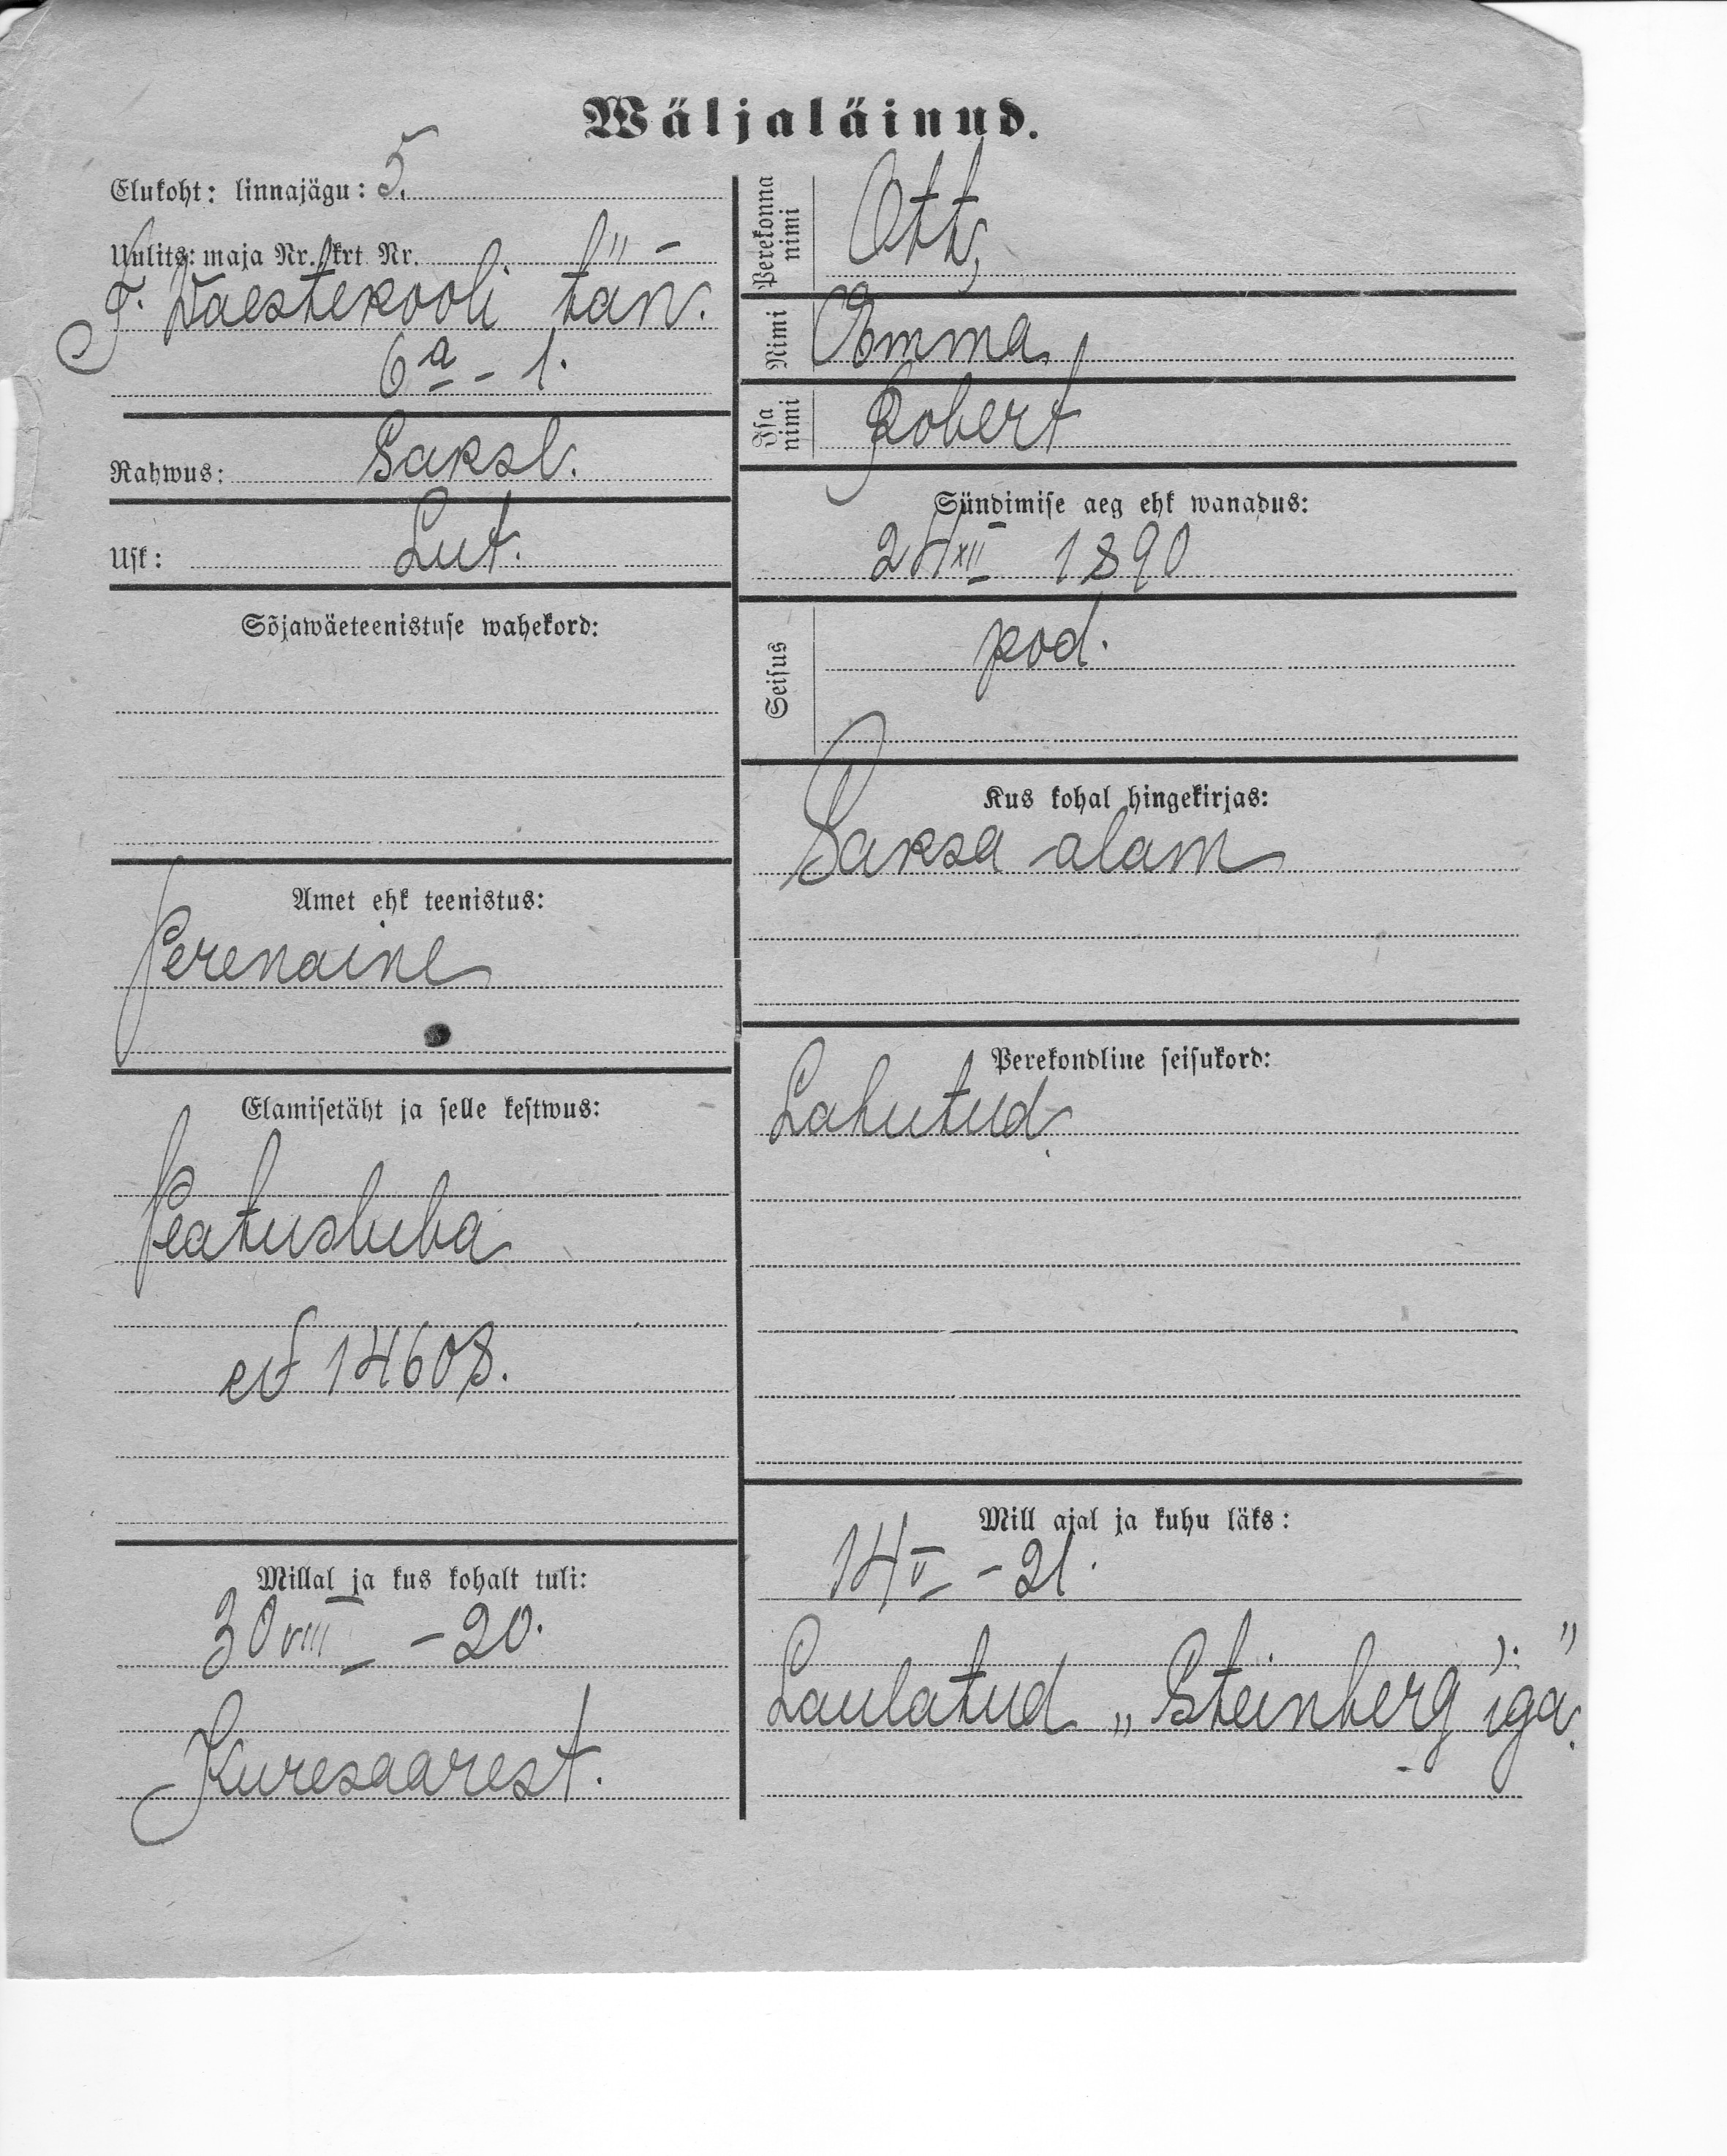 Wäljaläinud.
Elukoht: linnajägu: 5.
Uulits: maja Nr. krt Nr.
T. Waestekooli tän.
6a - 1.
Rahwus: Saksl.
Usk: Lut.
Sõjawäeteenistuse wahekord:
Amet ehk teenistus:
Perenaine
Elamisetäht ja selle kestwus:
Peatusluba
№ 14608.
Millal ja kus kohalt tuli:
30 VIII - 20.
Kuresaarest.
Perekonna nimi Ott,
Nimi Emma
Isa nimi Robert
Sündimise aeg ehk wanadus:
24 XII 1890
Seisus pod.
Kus kohal hingekirjas:
Saksa alam
Perekondline seisukord:
Lahutud.
Mill ajal ja kuhu läks:
14 V - 21.
Laulatud „Steinberg'iga".